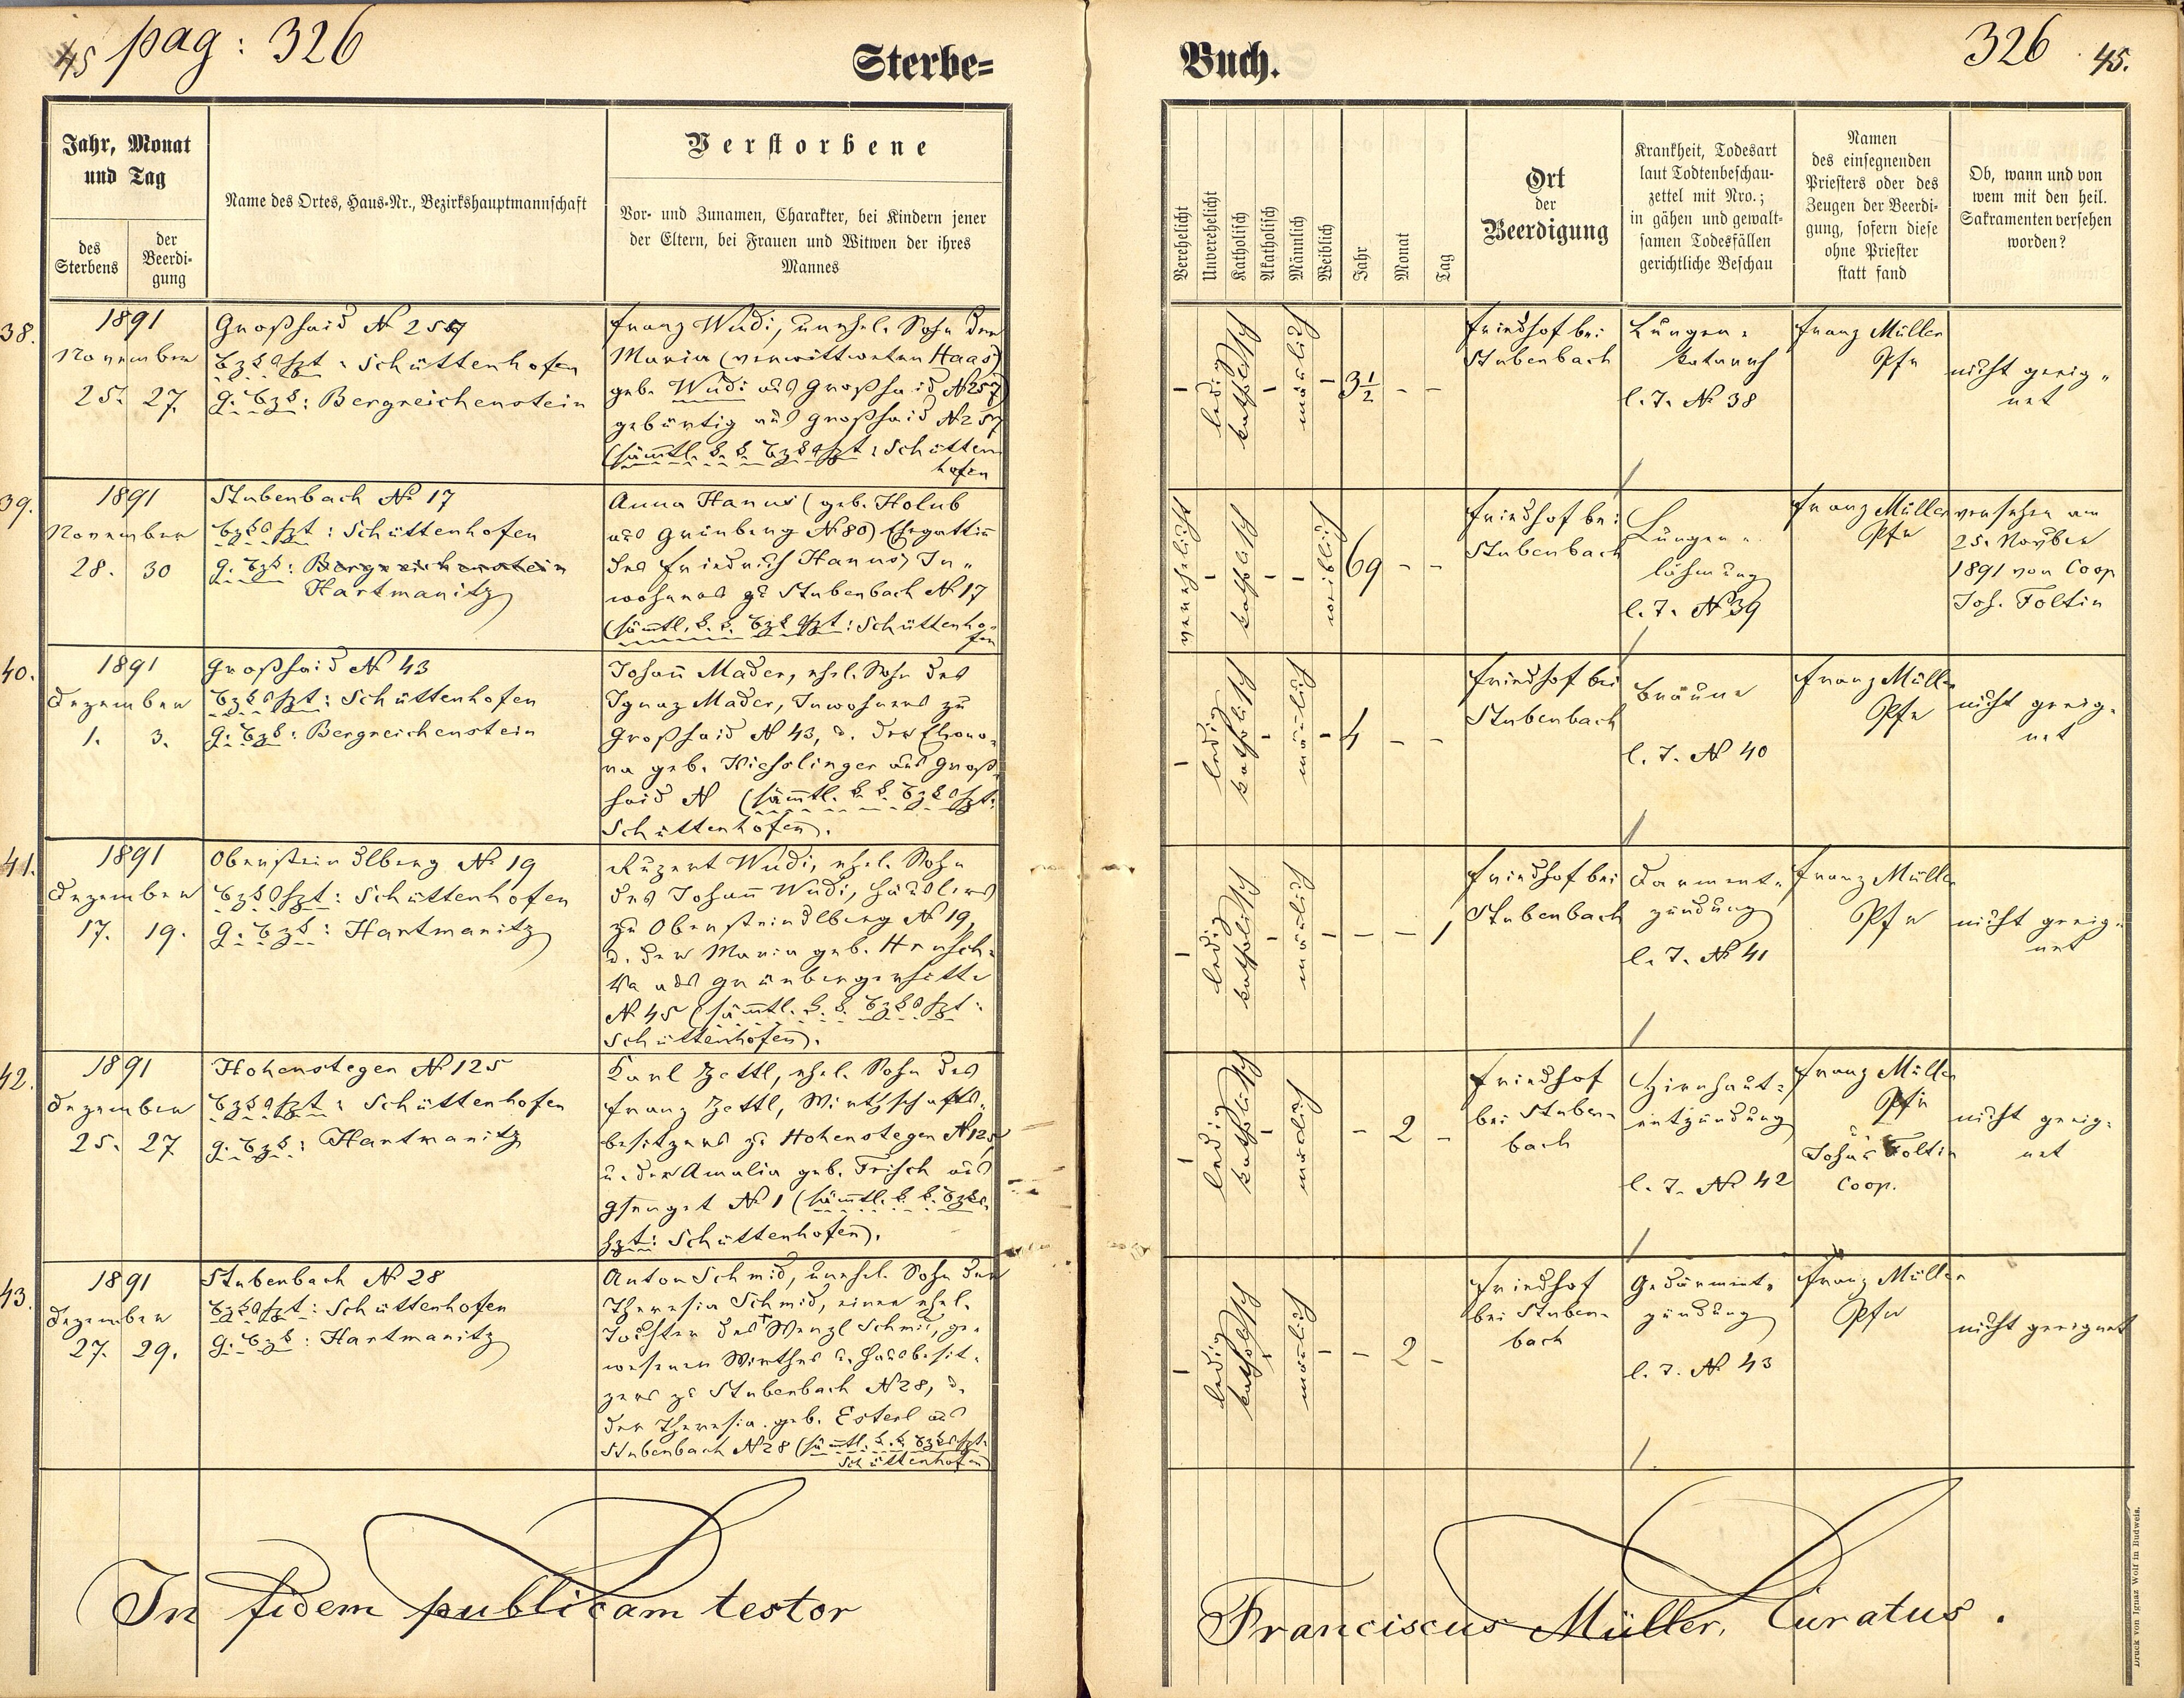 45 pag: 326
Sterbe=
Buch.
326 45.
Jahr, Monat
und Tag
des
Sterbens
der
Beerdi-
gung
Name des Ortes, Haus-Nr., Bezirkshauptmannschaft
Verstorbene
Vor- und Zunamen, Charakter, bei Kindern jener
der Eltern, bei Frauen und Witwen der ihres
Mannes
Verehelicht
Unverehelicht
Katholisch
Akatholisch
Männlich
Weiblich
Jahr
Monat
Tag
Ort
der
Beerdigung
Krankheit, Todesart
laut Todtenbeschau-
zettel mit Nro.;
in gähen und gewalt-
samen Todesfällen
gerichtliche Beschau
Namen
des einsegnenden
Priesters oder des
Zeugen der Beerdi-
gung, sofern diese
ohne Priester
statt fand
Ob, wann und von
wem mit den heil.
Sakramenten versehen
worden?
38.
1891
November
25. 27.
Großhaid № 257
Bzkshpt: Schüttenhofen
G. Bzk: Bergreichenstein
Franz Wudi, unehel. Sohn der
Maria (verwittweten Haas)
geb. Wudi aus Großhaid № 257
gebürtig aus Großhaid № 257
(sämmtl. k. k. Bzkshpt: Schütten
hofen
ledig
katholisch
männlich
3½ - -
Friedhof bei
Stubenbach
Lungen-
katarrh
l. T. № 38
Franz Müller
Pfr
nicht geeig-
net
39.
1891
November
28. 30
Stubenbach № 17
Bzkshpt: Schüttenhofen
G. Bzk: Bergreichenstein
Hartmanitz
Anna Hanus (geb. Holub
aus Grünberg № 80) Ehegattin
des Friedrich Hanus, In-
wohners zu Stubenbach № 17
(sämmtl. k. k. Bzkshpt: Schüttenho-
fen
verehelicht
katholisch
weiblich
69 - -
Friedhof bei
Stubenbach
Lungen-
lähmung
l. T. № 39
Franz Müller
Pfr
versehen am
25. Novber
1891 von Coop
Joh. Foltin
40.
1891
Dezember
1. 3.
Großhaid № 43
Bzkshpt: Schüttenhofen
G. Bzk: Bergreichenstein
Johann Mader, ehel. Sohn des
Ignaz Mader, Inwohners zu
Großhaid № 43, u. der Eleono-
ra geb. Kieslinger aus Groß-
haid № (sämmtl. k. k. Bzkshpt:
Schüttenhofen).
ledig
katholisch
männlich
4 - -
Friedhof bei
Stubenbach
Bräune
l. T. № 40
Franz Müller
Pfr
nicht geeig-
net
41.
1891
Dezember
17. 19.
Obersteindlberg № 19
Bzkshpt: Schüttenhofen
G. Bzk: Hartmanitz
Rupert Wudi, ehel. Sohn
des Johann Wudi, Häuslers
zu Obersteindlberg № 19,
u. der Maria geb.
aus Grünbergerhütte
№ 45 (sämmtl. k. k. Bzkshpt:
Schüttenhofen).
ledig
katholisch
männlich
- - 1
Friedhof bei
Stubenbach
Darment-
zündung
l. T. № 41
Franz Müller
Pfr
nicht geeig-
net
42.
1891
Dezember
25. 27
Hohenstegen № 125
Bzkshpt: Schüttenhofen
G. Bzk: Hartmanitz
Karl Zettl, ehel. Sohn des
Franz Zettl, Wirthschafts-
besitzers zu Hohenstegen № 125
u. der Amalia geb. Frisch aus
Gsenget № 1 (sämmtl. k. k. Bzks
hpt: Schüttenhofen).
ledig
katholisch
männlich
- 2 -
Friedhof
bei Stuben-
bach
Hirnhaut-
entzündung
l. T. № 42
Franz Müller
Pfr
u.
Johann Foltin
Coop.
nicht geeig-
net
43.
1891
Dezember
27. 29.
Stubenbach № 28
Bzkshpt: Schüttenhofen
G. Bzk: Hartmanitz
Anton Schmid, unehel. Sohn der
Theresia Schmid, einer ehel.
Tochter des † Wenzl Schmid, ge-
wesenen Wirthes u. Hausbesit-
zers zu Stubenbach № 28, u.
der Theresia geb. Esterl aus
Stubenbach № 28 (sämmtl. k. k. Bzkshpt:
Schüttenhofen)
ledig
katholisch
männlich
- 2 -
Friedhof
bei Stuben-
bach
Gedärment-
zündung
l. T. № 43
Franz Müller
Pfr
nicht geeignet
In fidem publicam testor
Franciscus Müller, Curatus.
Druck von Ignaz Wolf in Budweis.